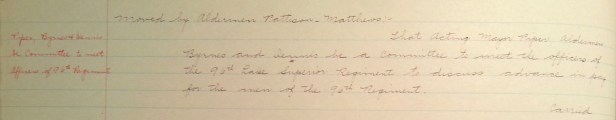 Moved by Aldermen Pattison - Matthews:-
Piper, Byrnes & Dennis
be Committee to meet
Officers of 96th Regiment
That Acting Mayor Piper, Aldermen
Byrnes and Dennis be a Committee to meet the officers of
the 96th Lake Superior Regiment to discuss advance in pay
for the men of the 96th Regiment.
Carried